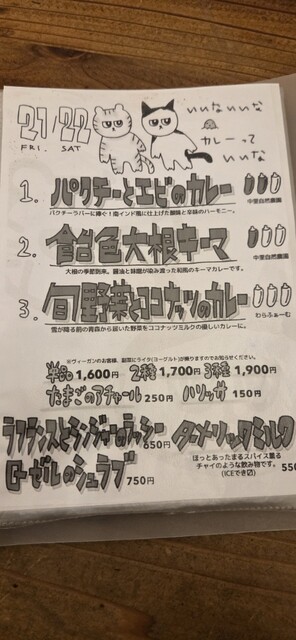 21/22
FRI. SAT
いいないいな
カレーって
いいな
1. パクチーとエビのカレー
パクチーラバーに捧ぐ!南インド風に仕上げた酸味と辛味のハーモニー。
中里自然農園
2. 飴色大根キーマ
大根の季節到来。醤油と味醂が染み渡った和風のキーマカレーです。
中里自然農園
3. 旬野菜とココナッツのカレー
雪が降る前の青森から届いた野菜をココナッツミルクの優しいカレーに。
わらふぁーむ
※ヴィーガンのお客様、副菜にライタ(ヨーグルト)が乗りますのでお知らせください。
単品 1,600円 2種 1,700円 3種 1,900円
たまごのアチャール 250円 ハリッサ 150円
ラフランスとジンジャーのラッシー 650円
ターメリックミルク
ほっとあったまるスパイス薫る
チャイのような飲み物です。
(ICEでき〼) 550
ローゼルのシュラブ 750円